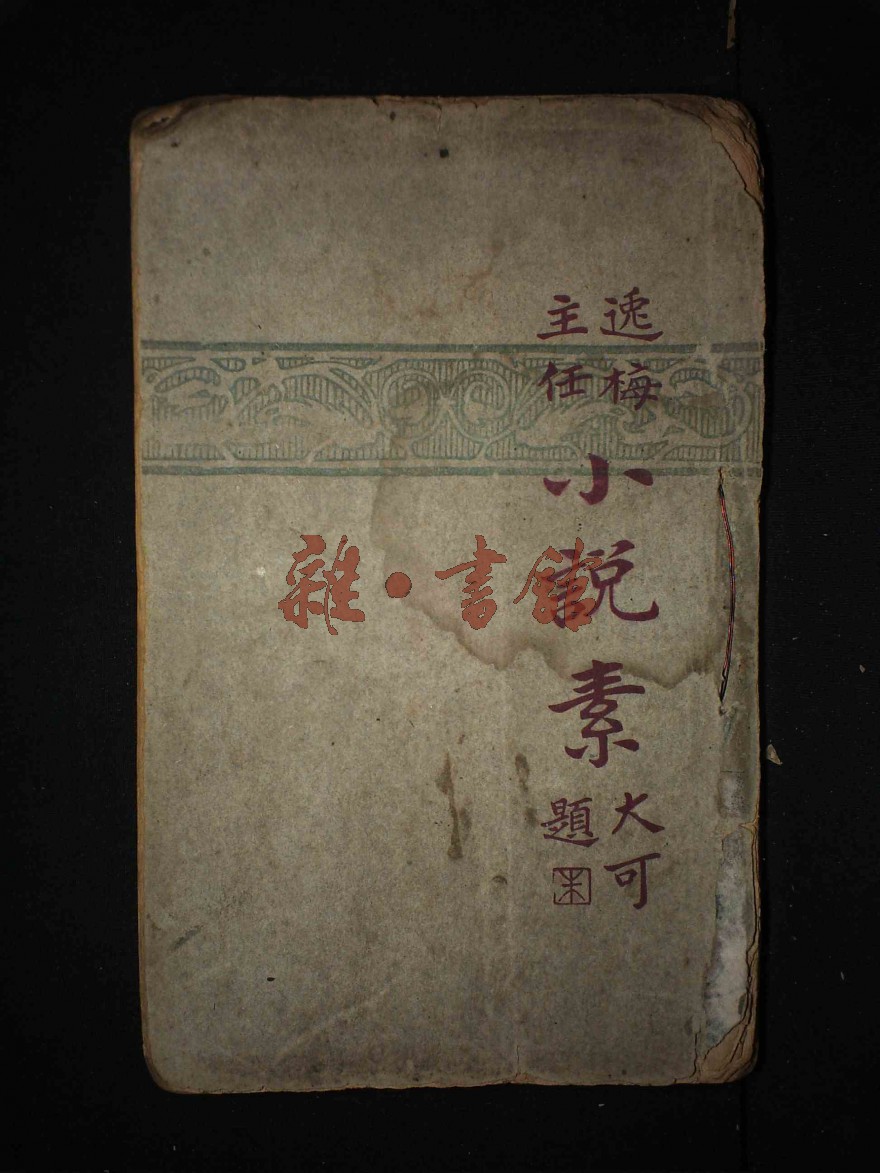 逸梅
主任
小說素
大可
題
朱
雜·書館